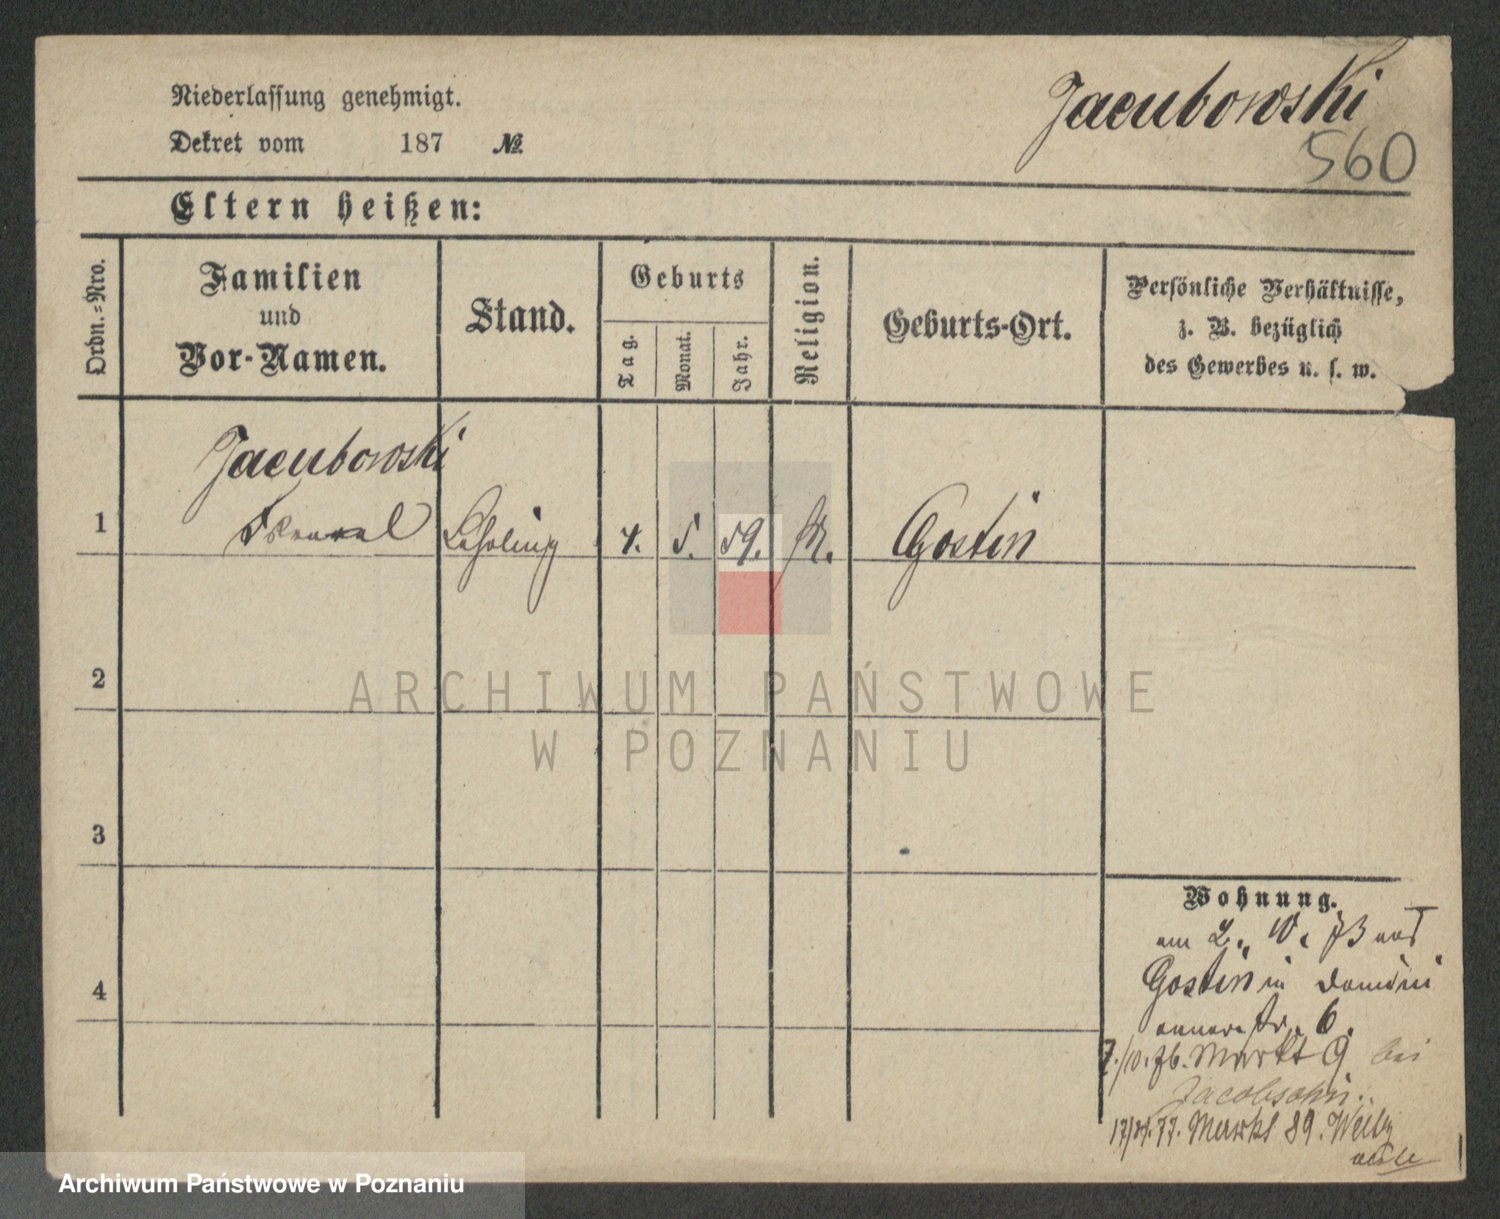 Niederlassung genehmigt.
Dekret vom 187 №
Jacubowski
560
Eltern heißen:
Ordn.=Nro.
Familien
und
Vor-Namen.
Stand.
Geburts
Tag.
Monat.
Jahr.
Religion.
Geburts-Ort.
Persönliche Verhältnisse,
z. B. bezüglich
des Gewerbes u. s. w.
Jacubowski
1 Lehrling 4. 5. 59. K. Gostin
2
ARCHIWUM PAŃSTWOWE
W POZNANIU
3
4
Wohnung.
am 2. 10. 73 aus
Gostin in Domini
kanerstr. 6.
7./10. 76. Markt 9 bei
Jacobsohn.
77. Markt 89.
Archiwum Państwowe w Poznaniu